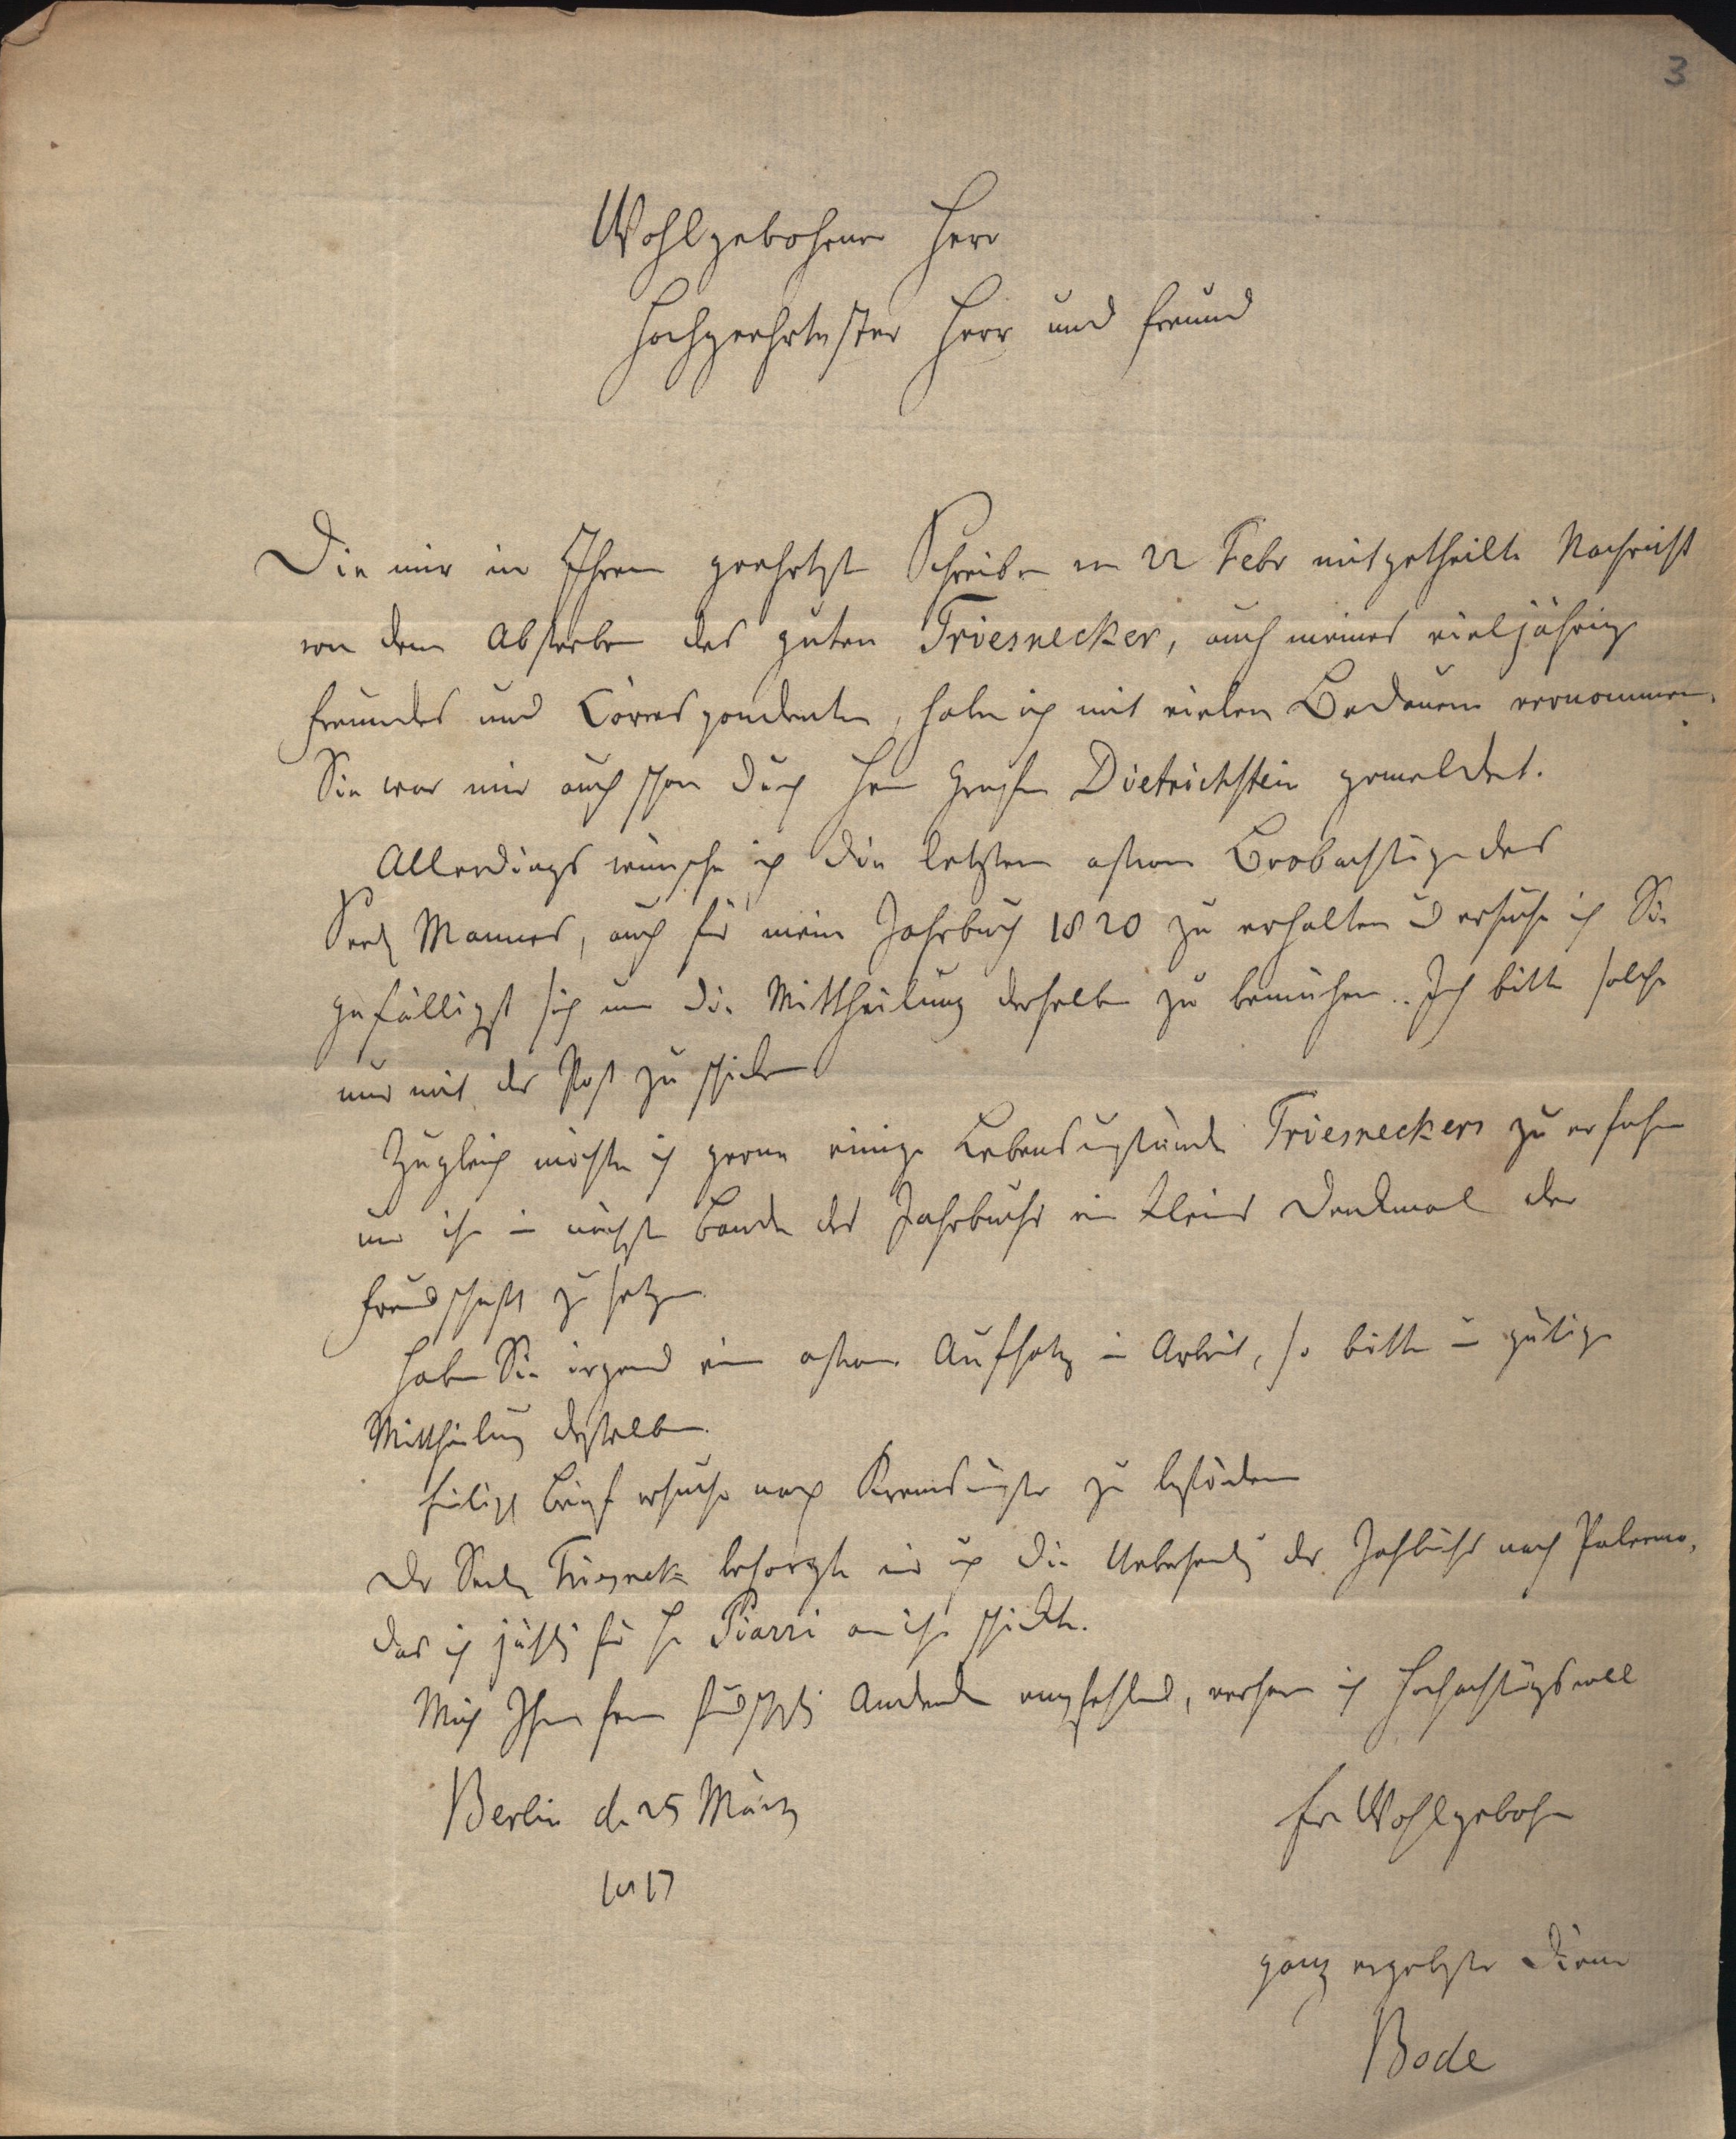 3
Wohlgebohrner Herr
Hochgeehrtester Herr und Freund
Die mir in Ihrem geehrtest Schreiben vom 22 Febr mitgetheilte Nachricht
von dem Absterben des guten Triesnecker, auch meines vieljährig
Freundes und Correspondenten, habe ich mit vielen Bedauern vernommen.
Sie war mir auch schon durch Herrn Grafen Dietrichstein gemeldet.
Allerdings wünsche ich die letztern astron Beobachtung des
Seel Mannes, auch für mein Jahrbuch 1820 zu erhalten u ersuche ich Sie
gefälligst sich um die Mittheilung derselben zu bemühen. Ich bitte solche
nur mit der Post zu schicken
Zugleich möchte ich gerne einige Lebensumstände Triesneckers zu erfahren
um ihm in nächsten Bande des Jahrbuchs ein kleines Denkmal der
Freundschaft zu setzen.
Haben Sie irgend eine astron Aufsatz in Arbeit, so bitte um gütige
Mittheilung desselben.
Brief ersuche nach Kremsmünster zu befördern
Der Seel Triesneck besorgte mir auch die Uebersendg des Jahrbuchs nach Palermo,
das ich jährl für H Piazzi an ihn schickte.
Mich Ihrem fernern freundschftl Andenken empfehlend, verharre ich Hochachtungsvoll
Berlin d. 25 März
1817
Ew Wohlgebohrn
ganz ergebenster Diener
Bode